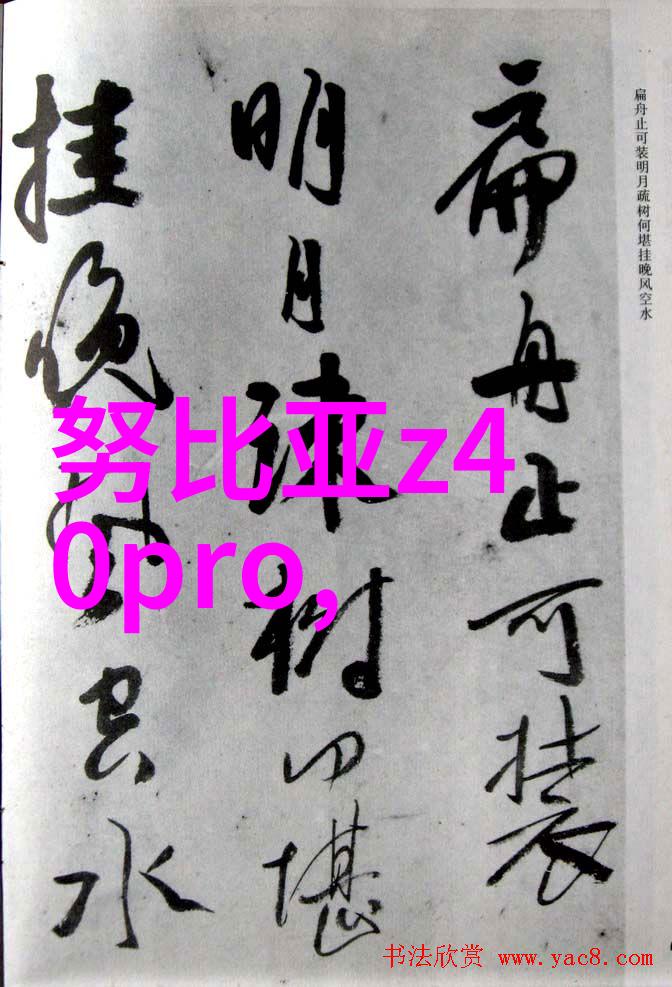 扁舟止可装
明月疏树何堪
挂晚风空水
扁舟止可装明月疏树何堪挂晚风空水
努比亚z4
0pro,
书法欣赏 www.yac8.com